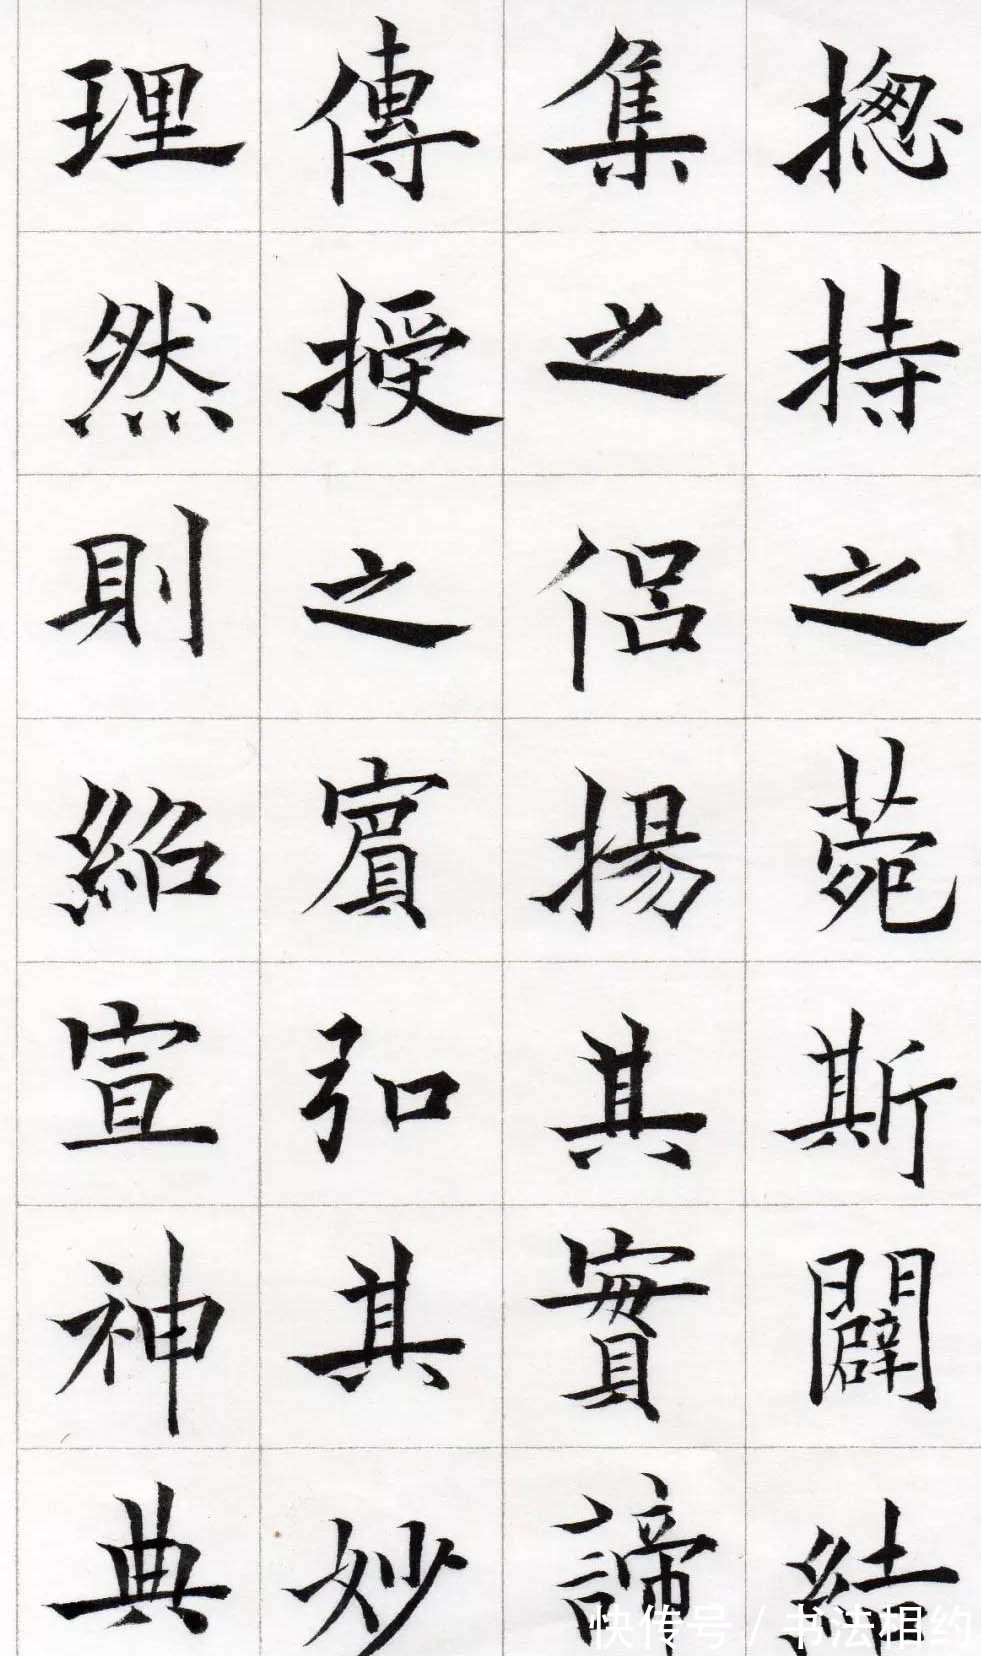 摠持之菀斯闢結
集之侶揚其實諦
傳授之賓弘其妙
理然則紹宣神典
快传号 / 书法相约